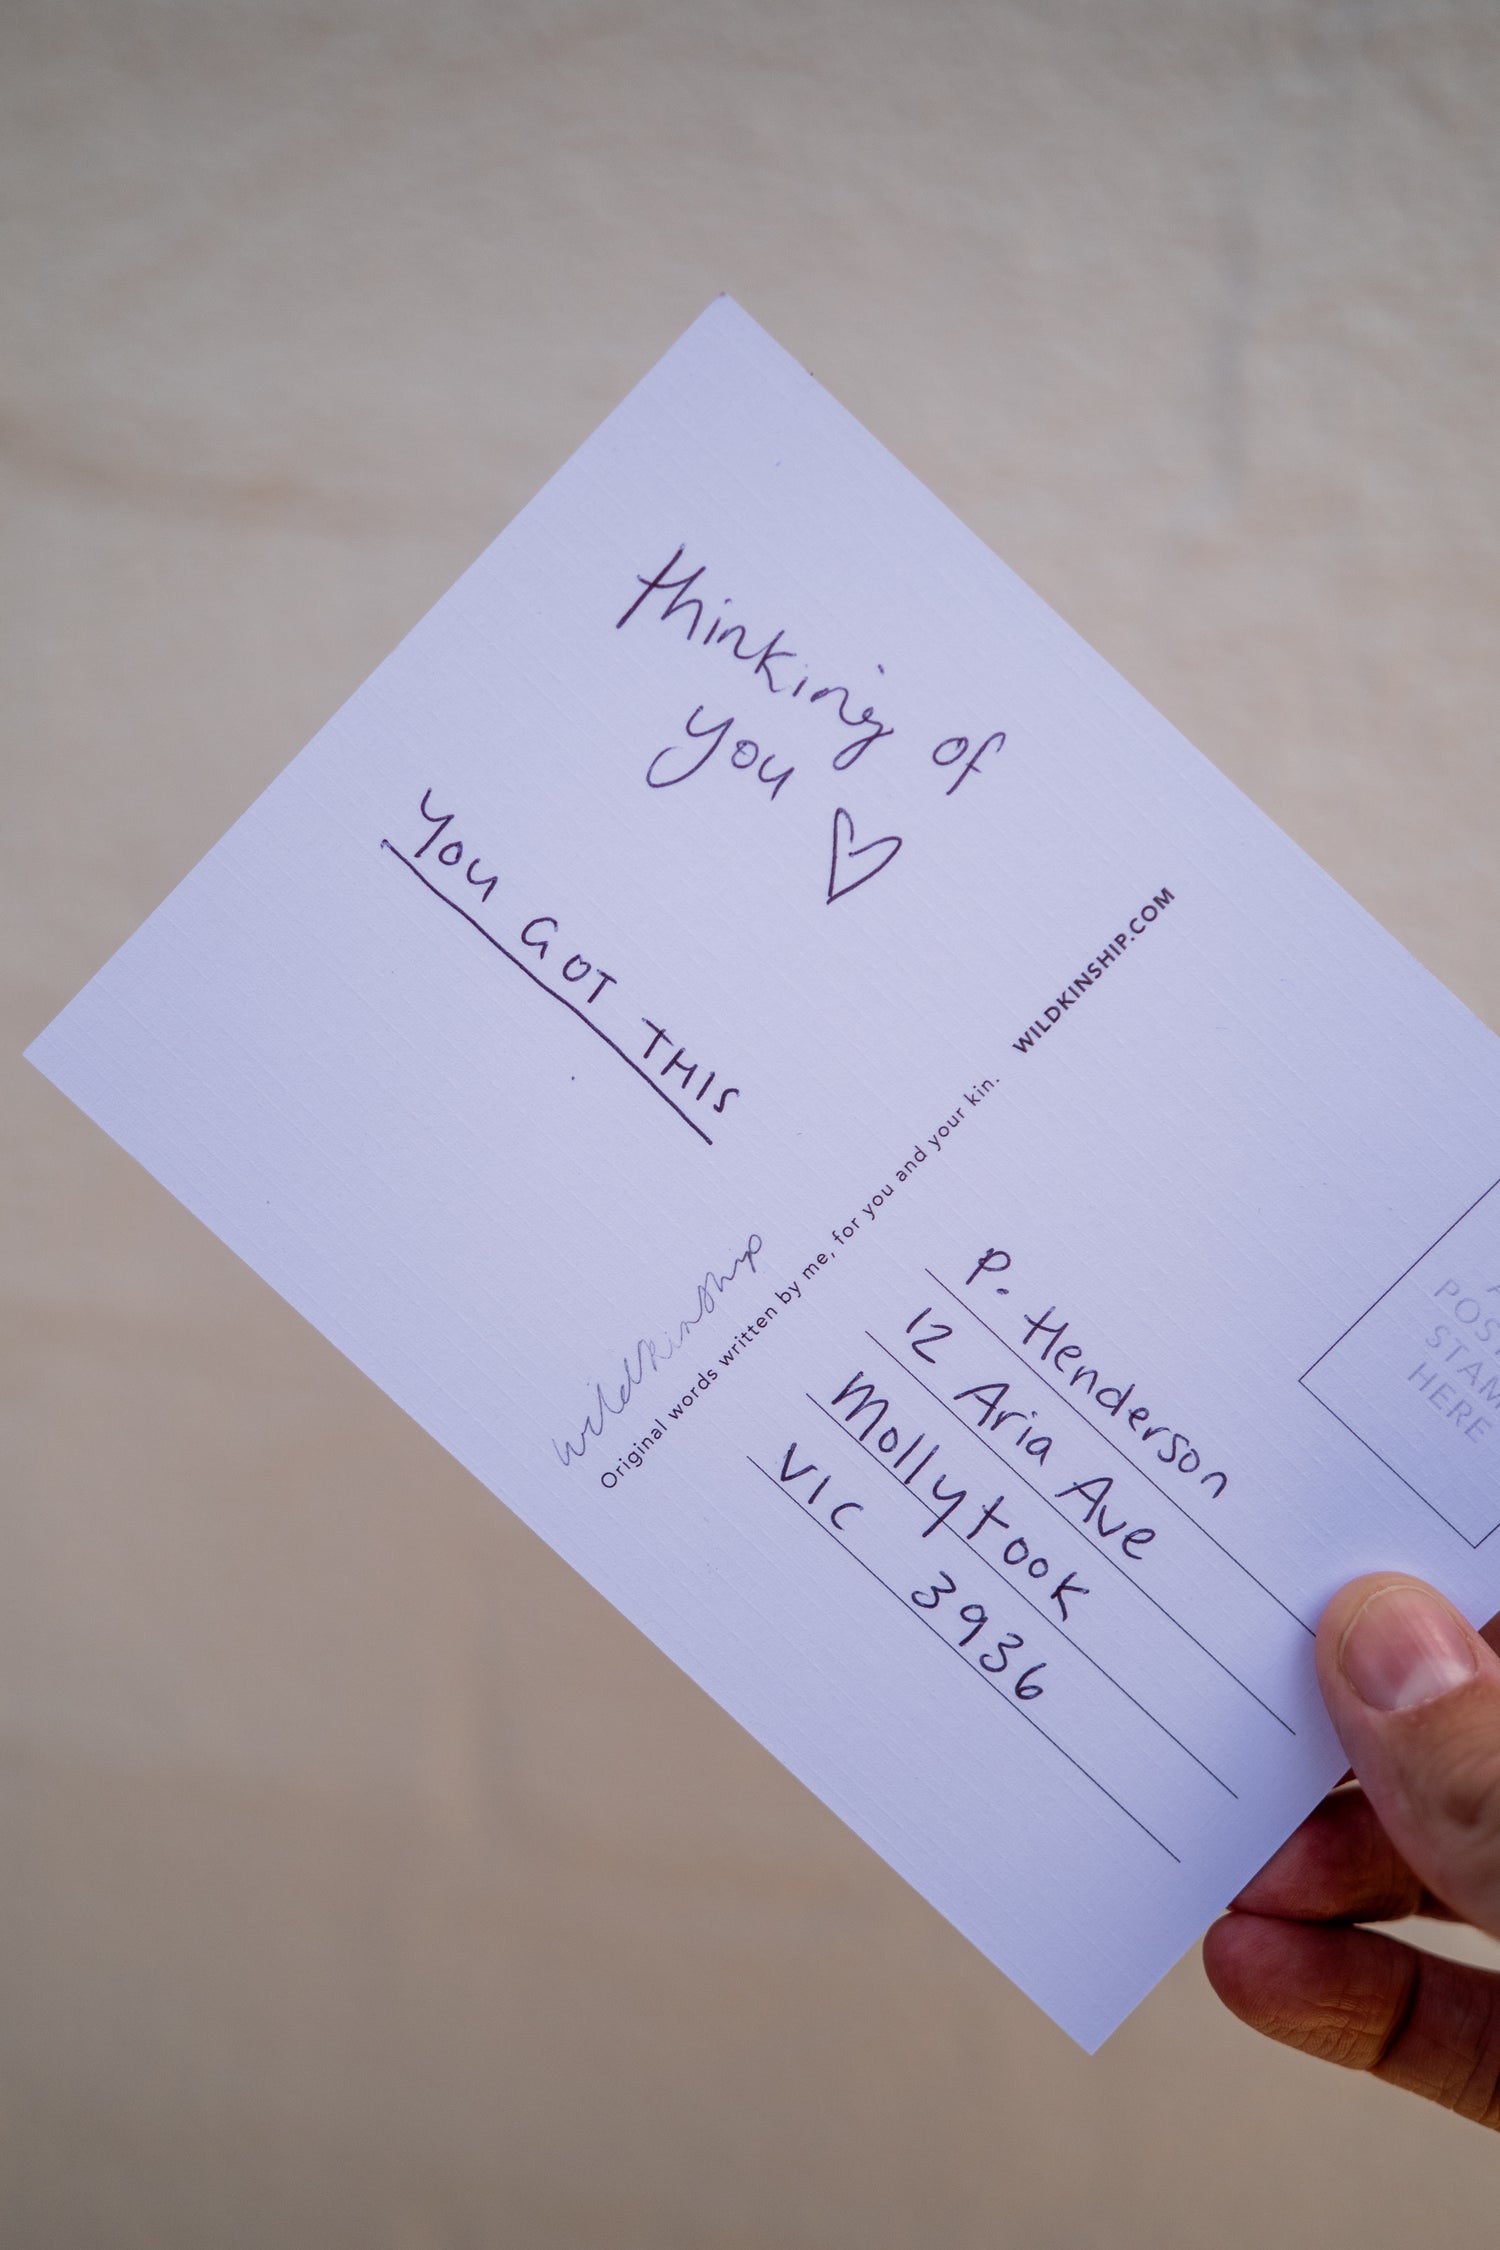 thinking of
you
YOU GOT THIS
wildkinship
Original words written by me, for you and your kin.
WILDKINSHIP.COM
P. Henderson
12 Aria Ave
Mollytook
VIC 3936
HERE